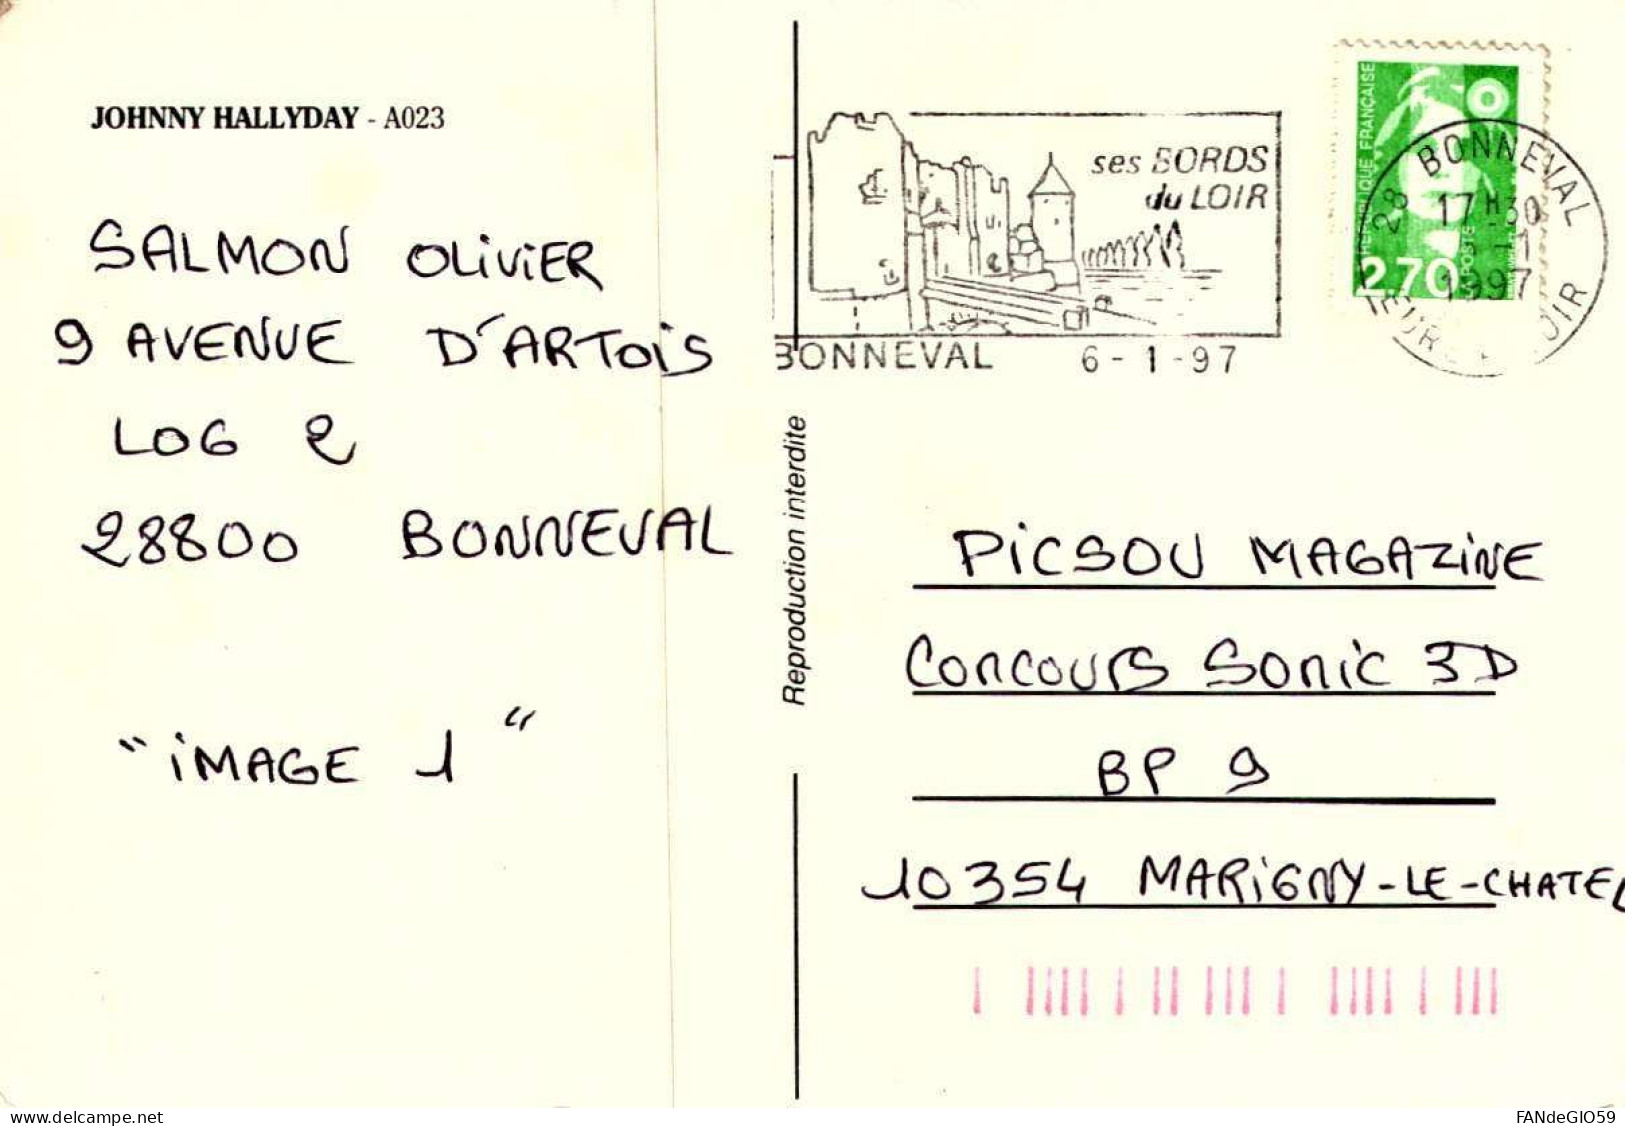 JOHNNY HALLYDAY - A023
SALMON OLIVIER
9 AVENUE D'ARTOIS
LOG 2
28800 BONNEVAL
"IMAGE 1"
Reproduction interdite
ses BORDS
du LOIR
BONNEVAL 6-1-97
RÉPUBLIQUE FRANÇAISE
2,70
LA POSTE
28 BONNEVAL
17 H 30
1997
EURE ET LOIR
PICSOU MAGAZINE
CONCOURS SONIC 3D
BP 9
10354 MARIGNY-LE-CHATEL
www.delcampe.net
FANdeGIO59